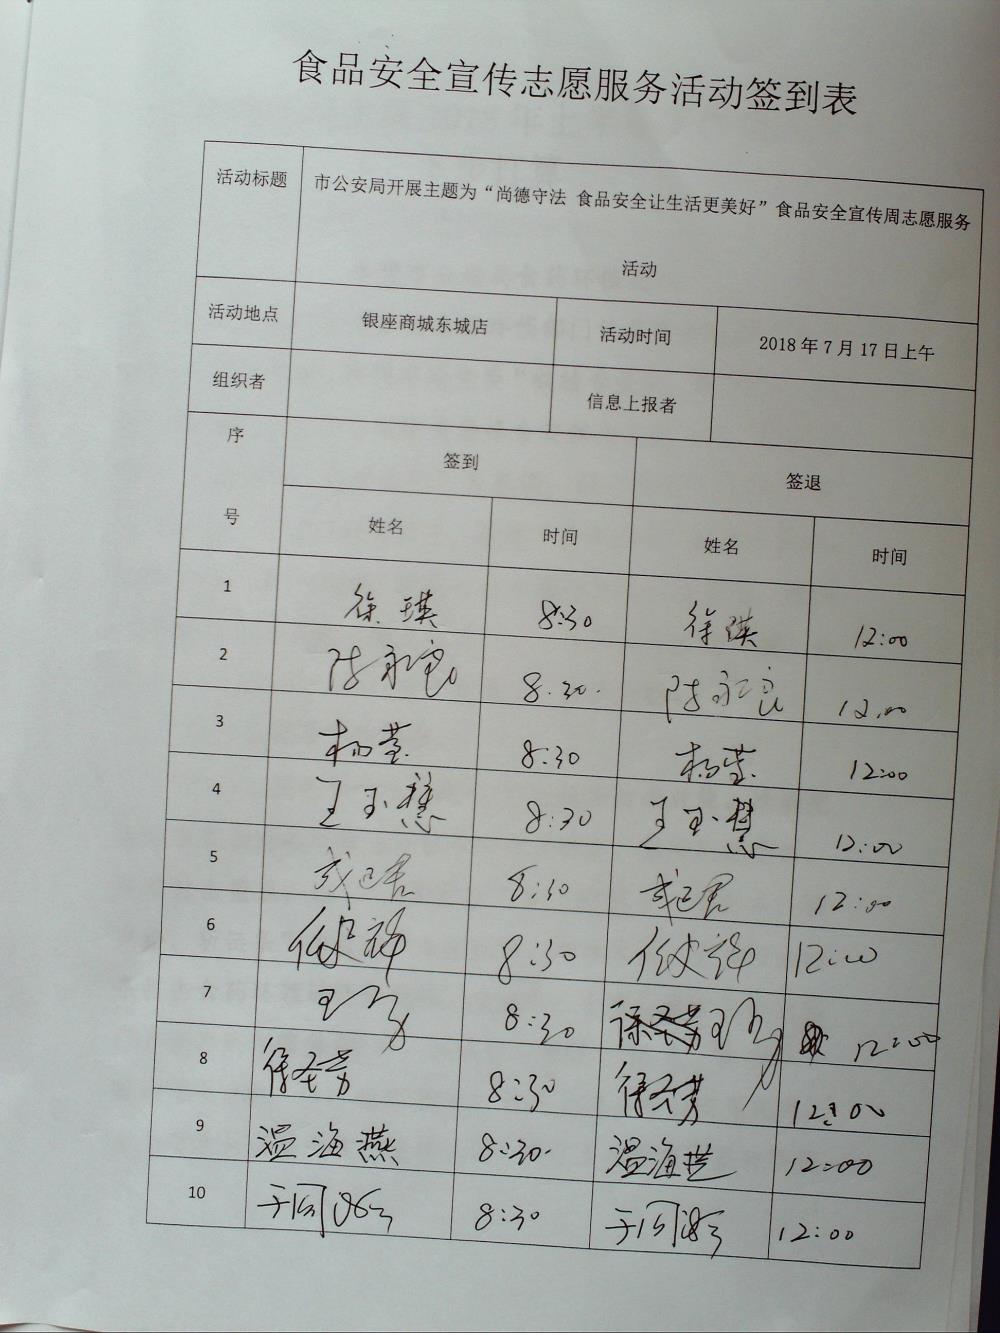 食品安全宣传志愿服务活动签到表
活动标题 市公安局开展主题为“尚德守法 食品安全让生活更美好”食品安全宣传周志愿服务
活动
活动地点 银座商城东城店 活动时间 2018年7月17日上午
组织者 信息上报者
序
号
签到 签退
姓名 时间 姓名 时间
1 徐瑛 8:30 徐瑛 12:00
2 陈永良 8:30 陈永良 12:00
3 杨莹 8:30 杨莹 12:00
4 王玉慧 8:30 王玉慧 12:00
5 8:30 12:00
6 8:30 12:00
7 王 8:30 王 12:00
8 徐圣芳 8:30 徐圣芳 12:00
9 温海燕 8:30 温海燕 12:00
10 8:30 12:00